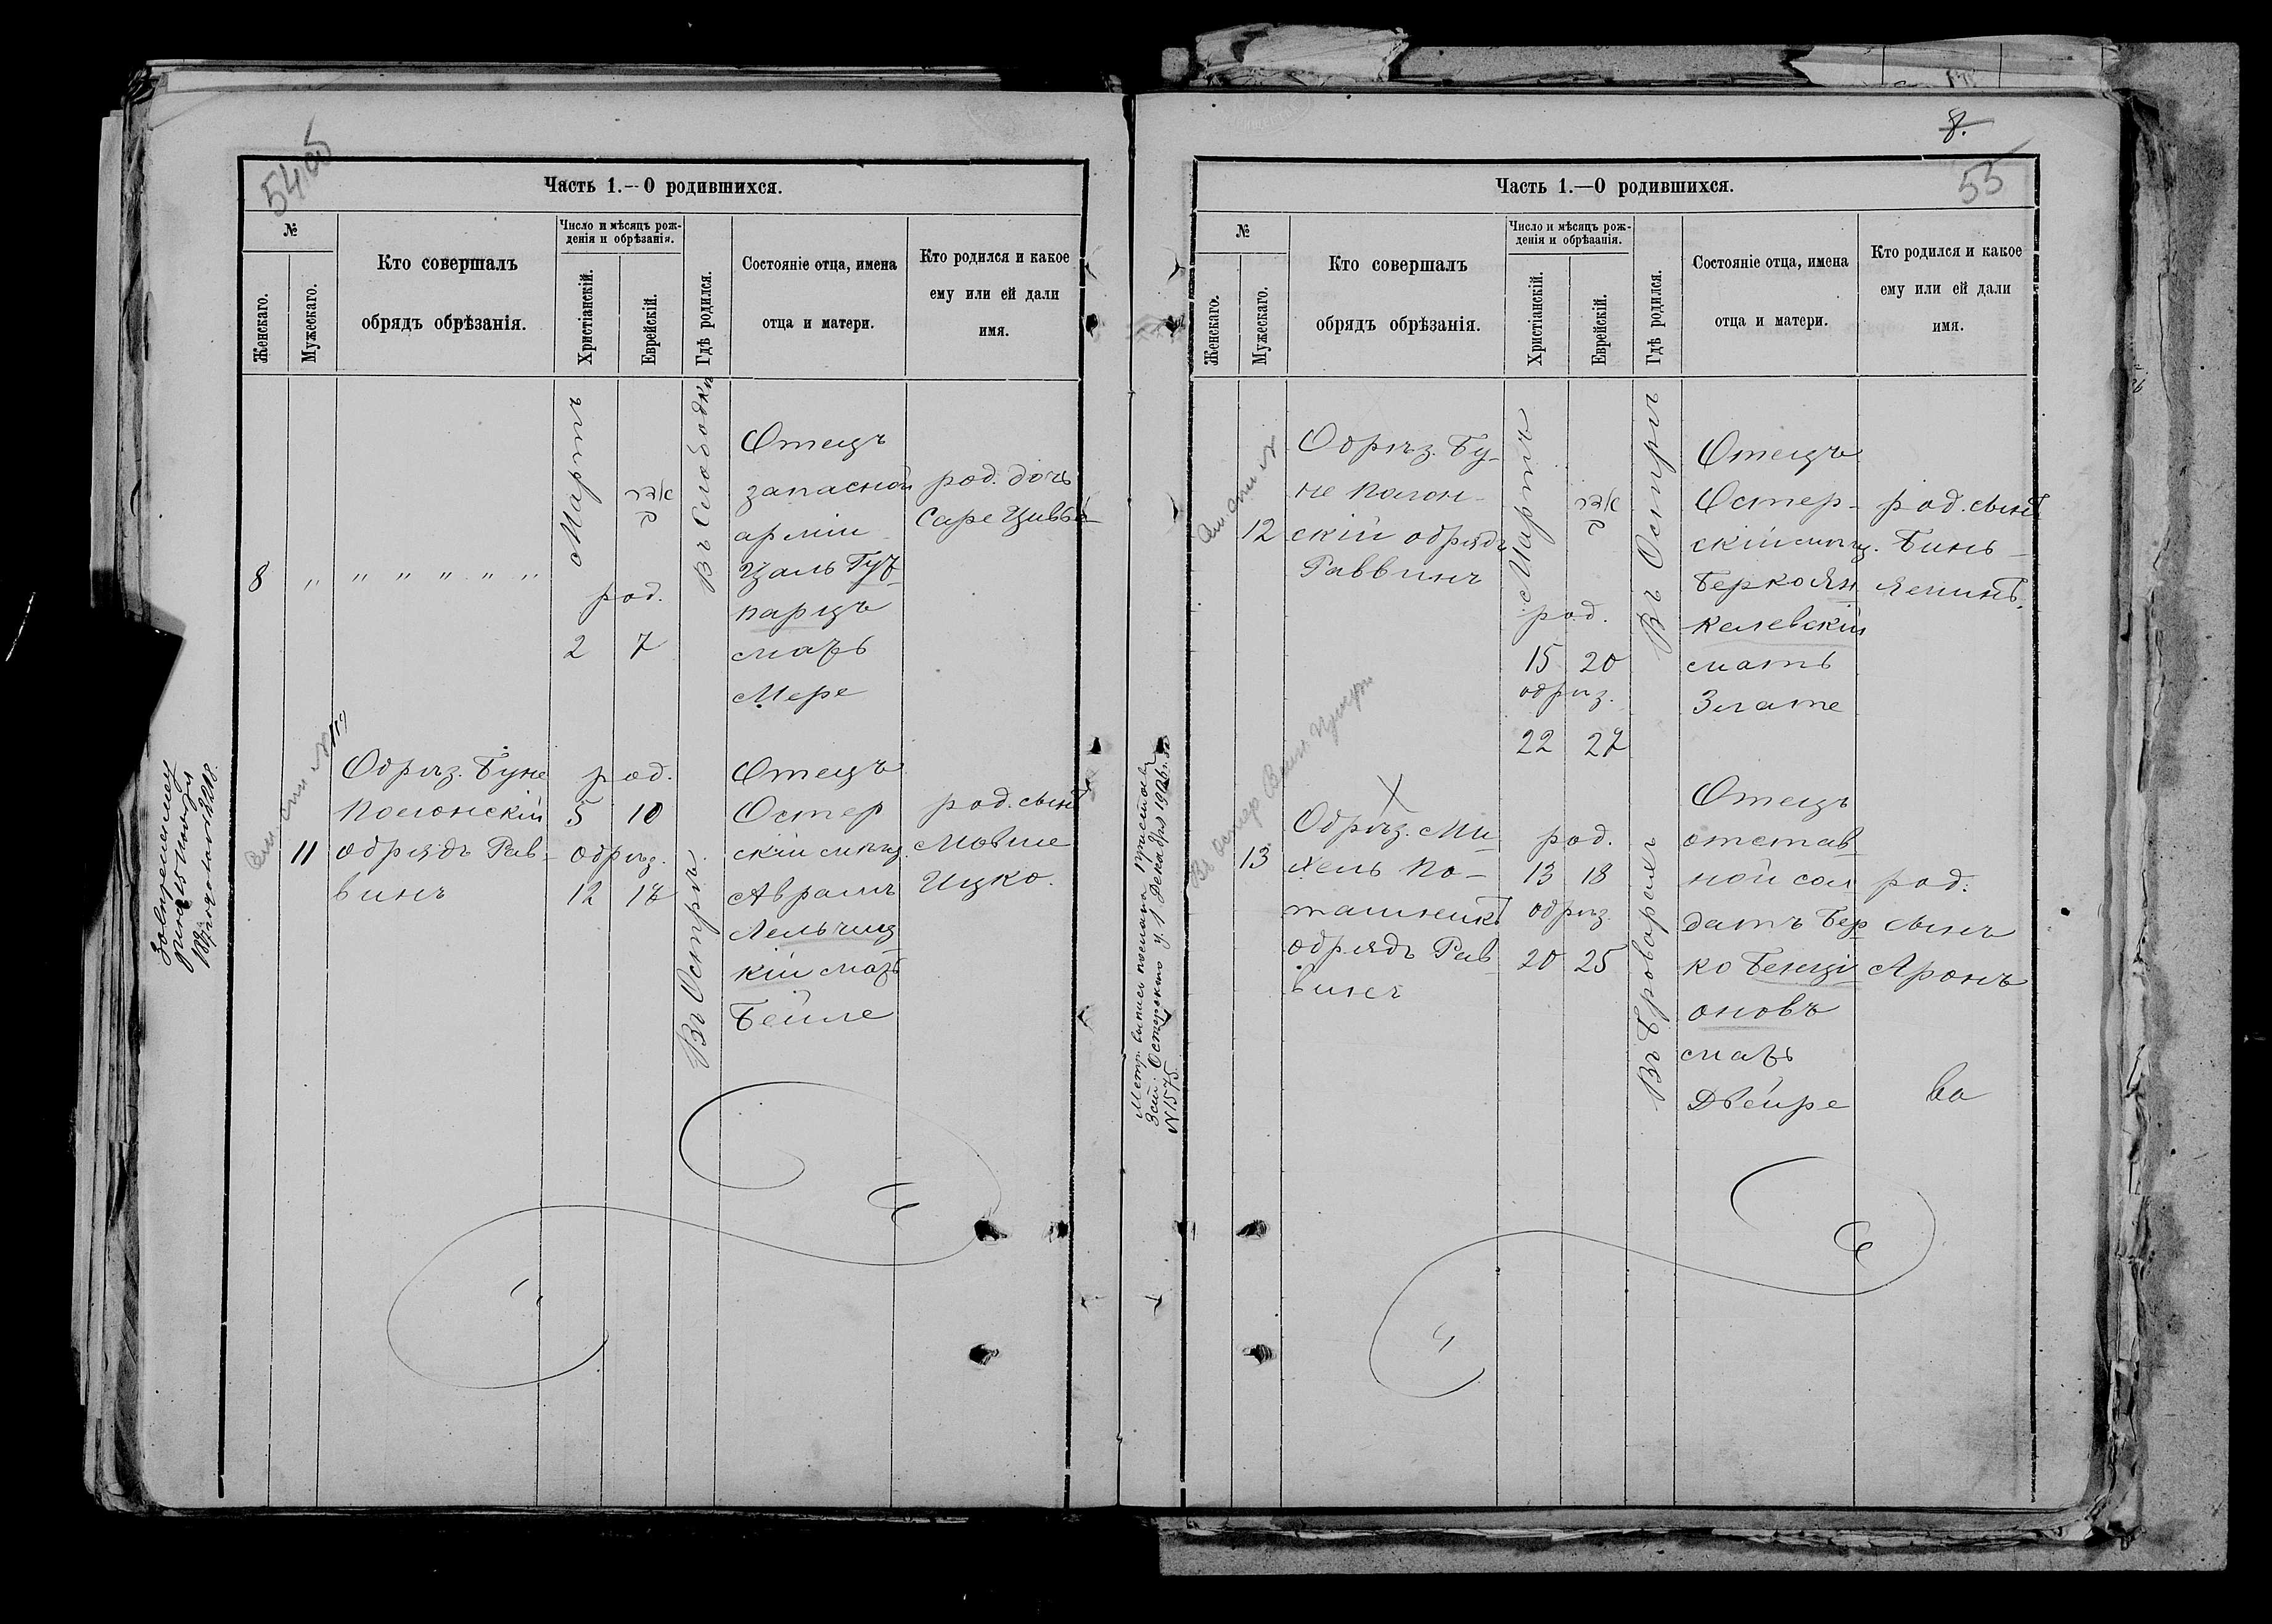 54 об
Часть 1.—О родившихся.
№
Женскаго.
Мужескаго.
Кто совершалъ
обрядъ обрѣзанія.
Число и мѣсяцъ рож-
денія и обрѣзанія.
Христіанскій.
Еврейскій.
Гдѣ родился.
Состояніе отца, имена
отца и матери.
Кто родился и какое
ему или ей дали
имя.
8
" " " " " "
Мартъ
род.
2 7
Въ Слободки
Отецъ
запасной
арміи
Цаль Гур-
парцъ
мать
Мере
род. дочь
Саре Цивье
11
Обрѣз. Буне
Полонскій
обрядъ Рав-
винъ
род.
5 10
обрѣз.
12 17
Въ Острѣ
Отецъ
Остер
скій мѣщ.
Аврамъ
Лельчиц
кій мать
Бейле
род. сынъ
Мовше
Ицко.
8.
55
Часть 1.—О родившихся.
№
Женскаго.
Мужескаго.
Кто совершалъ
обрядъ обрѣзанія.
Число и мѣсяцъ рож-
денія и обрѣзанія.
Христіанскій.
Еврейскій.
Гдѣ родился.
Состояніе отца, имена
отца и матери.
Кто родился и какое
ему или ей дали
имя.
12
Обрѣз. Бу-
не Полон-
скій обрядъ
Раввинъ
Мартъ
род.
15 20
обрѣз.
22 27
Въ Острѣ
Отецъ
Остер-
скій мѣщ.
Берко Ян
келевскій
мать
Злате
род. сынъ
Бинь-
яминъ.
Метр. выпись послана Приставу
3 ст. Остерскаго у. 1 Декабря
N 1575.
13
Обрѣз. Ми
хель По-
ташник
обрядъ Рав
винъ
род.
13 18
обрѣз.
20 25
Въ Броворахъ
Отецъ
отстав
ной сол
датъ Бер
ко Бенці
оновъ
мать
Двейре
род.
сынъ
Аронъ